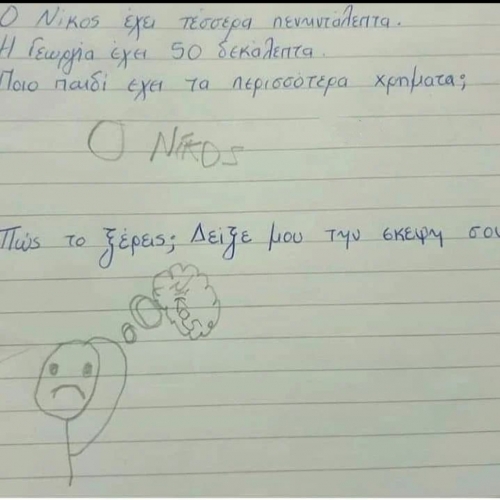 Ο Νίκος έχει τέσσερα πενηντάλεπτα.
Η Γεωργία έχει 50 δεκάλεπτα.
Ποιο παιδί έχει τα περισσότερα χρήματα;
Ο ΝΙΚΟS
Πώς το ξέρεις; Δείξε μου την σκέψη σου
ΝΙΚΟS